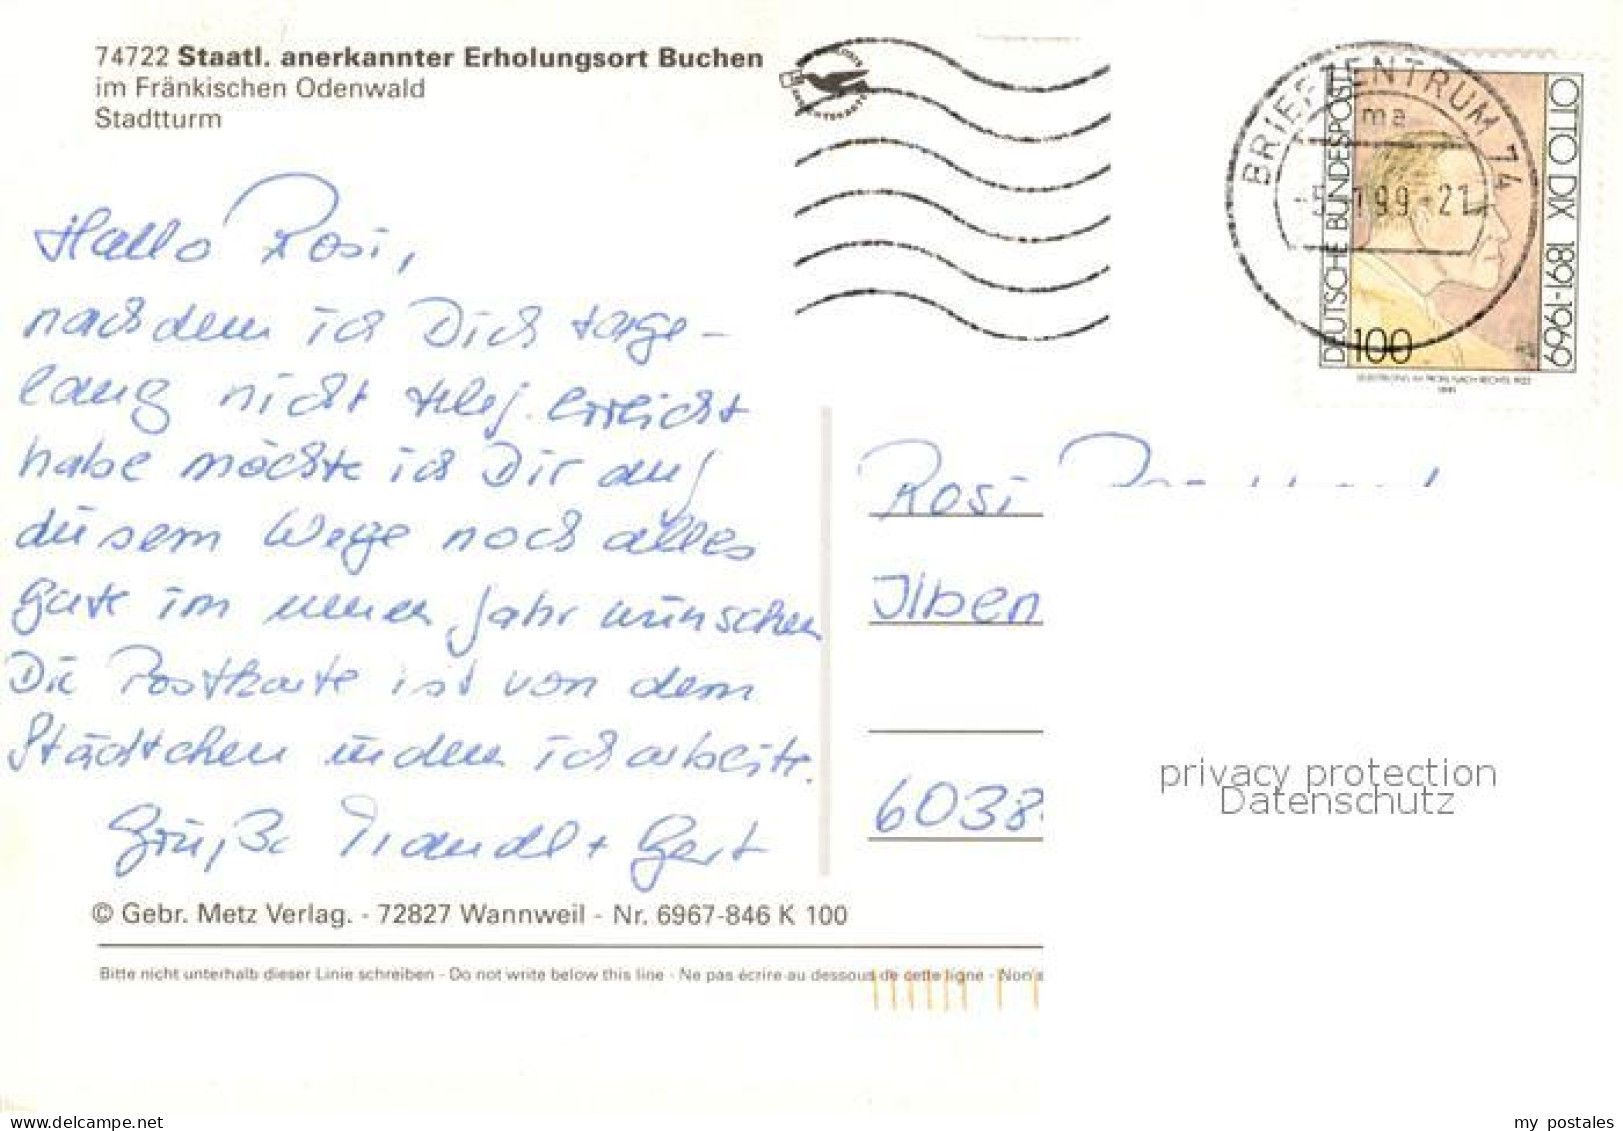 74722 Staatl. anerkannter Erholungsort Buchen
im Fränkischen Odenwald
Stadtturm
Hallo Rosi,
nachdem ich Dich tage-
lang nicht telef. erreicht
habe möchte ich Dir auf
diesem Wege noch alles
Gute im neuen Jahr wünschen
Die Postkarte ist von dem
Städtchen in dem ich arbeite.
Grüße Traudl + Gert
© Gebr. Metz Verlag. - 72827 Wannweil - Nr. 6967-846 K 100
Bitte nicht unterhalb dieser Linie schreiben - Do not write below this line - Ne pas écrire au dessous de cette ligne - Non s
BRIEFZENTRUM 74
ma
-5.-1.99-21
DEUTSCHE BUNDESPOST
100
OTTO DIX 1891-1969
Rosi
Ilben
6038
privacy protection
Datenschutz
my postales